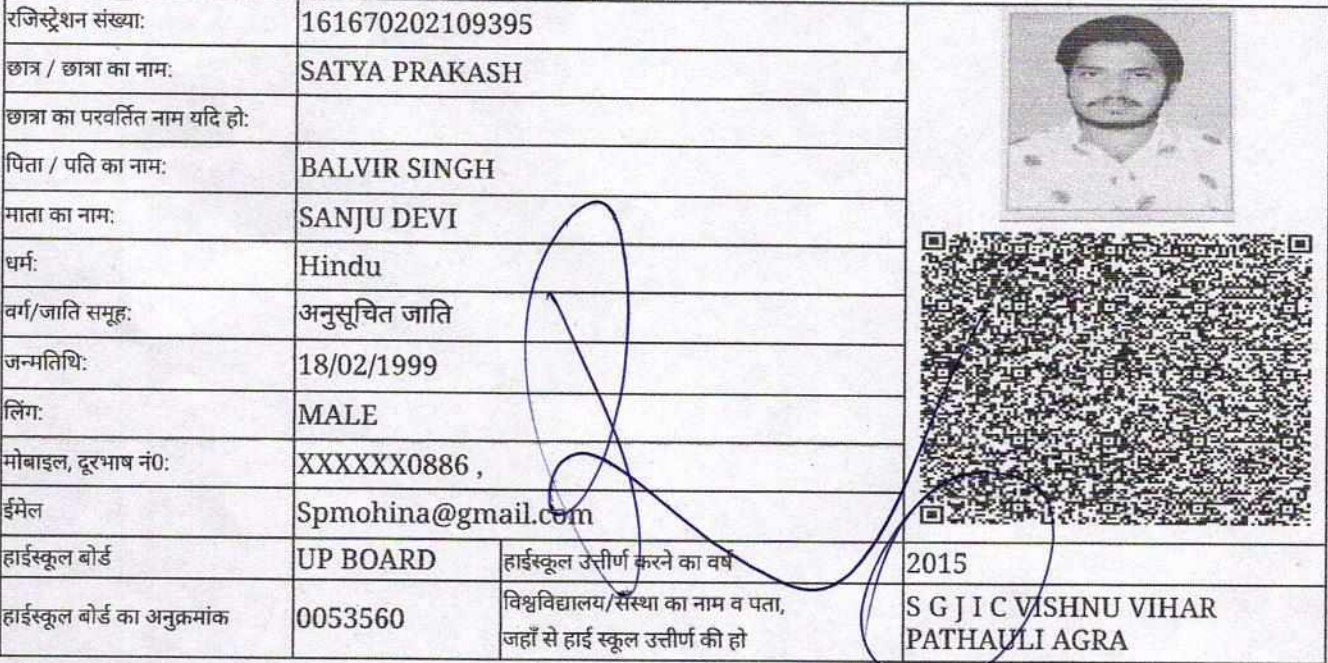 रजिस्ट्रेशन संख्या: 161670202109395
छात्र / छात्रा का नाम: SATYA PRAKASH
छात्रा का परवर्तित नाम यदि हो:
पिता / पति का नाम: BALVIR SINGH
माता का नाम: SANJU DEVI
धर्म: Hindu
वर्ग/जाति समूह: अनुसूचित जाति
जन्मतिथि: 18/02/1999
लिंग: MALE
मोबाइल, दूरभाष नं0: XXXXXX0886 ,
ईमेल Spmohina@gmail.com
हाईस्कूल बोर्ड UP BOARD हाईस्कूल उत्तीर्ण करने का वर्ष 2015
हाईस्कूल बोर्ड का अनुक्रमांक 0053560 विश्वविद्यालय/संस्था का नाम व पता, S G J I C VISHNU VIHAR
जहाँ से हाई स्कूल उत्तीर्ण की हो PATHAULI AGRA